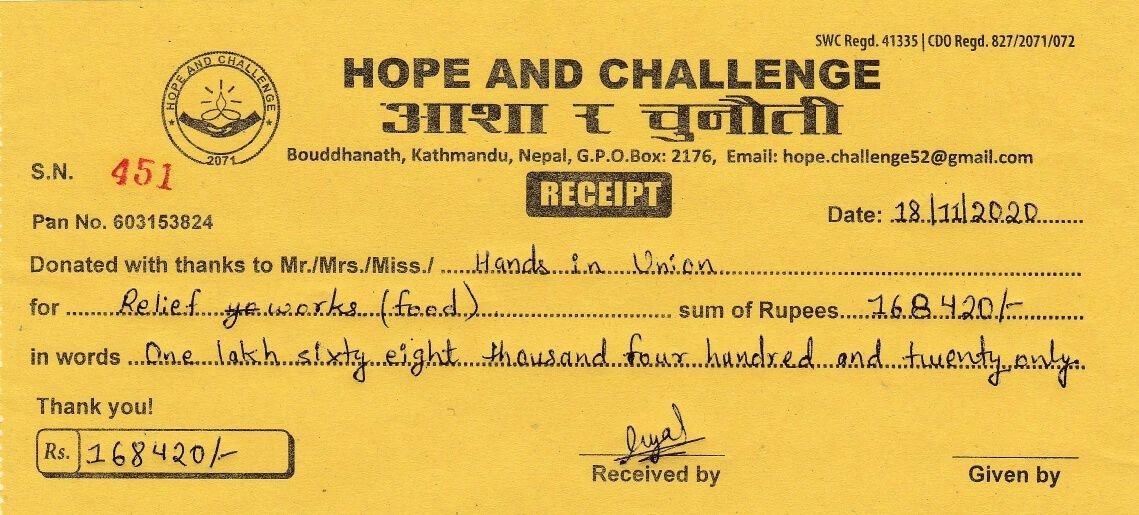 SWC Regd. 41335 | CDO Regd. 827/2071/072
HOPE AND CHALLENGE
2071
HOPE AND CHALLENGE
आशा र चुनौती
Bouddhanath, Kathmandu, Nepal, G.P.O.Box: 2176, Email: hope.challenge52@gmail.com
S.N. 451
RECEIPT
Pan No. 603153824
Date: 18/11/2020
Donated with thanks to Mr./Mrs./Miss./ Hands in Union
for Relief works (food) sum of Rupees 168420/-
in words One lakh sixty eight thousand four hundred and twenty only.
Thank you!
Rs. 168420/-
Received by
Given by